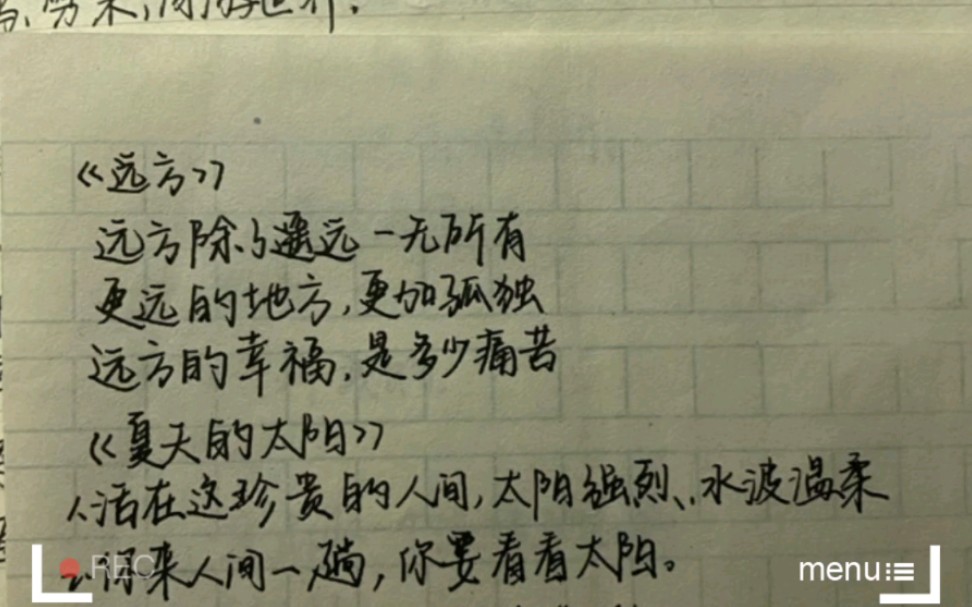 《远方》
远方除了遥远一无所有
更远的地方,更加孤独
远方的幸福,是多少痛苦
《夏天的太阳》
人活在这珍贵的人间,太阳强烈、水波温柔
来人间一趟,你要看看太阳。
REC
menu